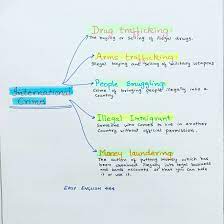 Drug trafficking:
The buying or selling of illegal drugs.
Arms trafficking:
Illegal buying and selling of military weapons
People Smuggling:
Crime of bringing people illegally into a
country.
International
Crime
Illegal Immigrant:
Someone who comes to live in another
country without official permission.
Money laundering:
The action of putting money which has
been obtained illegally into legal business
and bank accounts so that you can hide
it or use it.
EASY ENGLISH 444